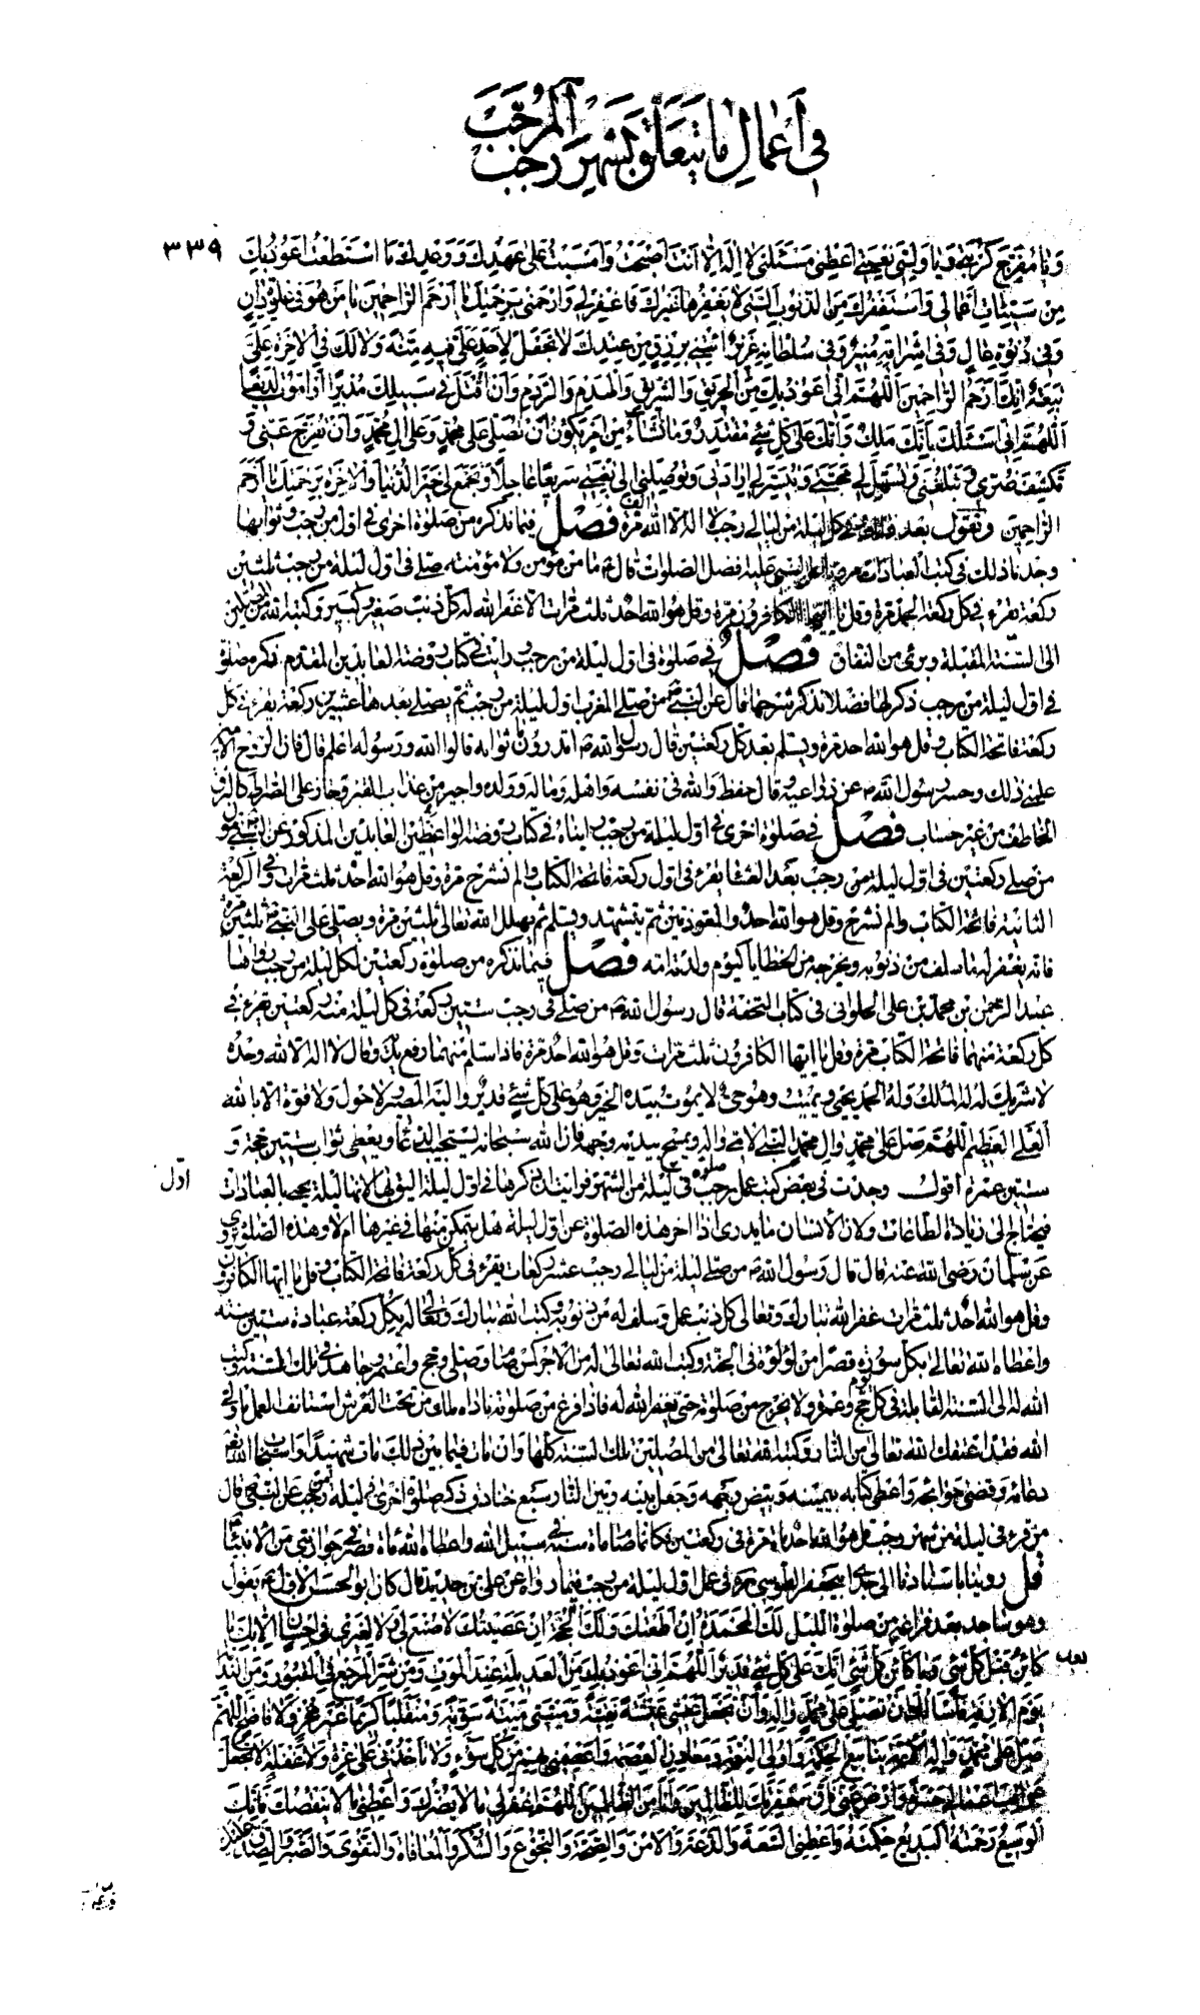 في أعمال ما يتعلق بشهر رجب المرجب
٣٣٩
ويا مفرج كربتي ويا وليي في نعمتي أعطني مسئلتي لا إله إلا أنت أصبحت وأمسيت على عهدك ووعدك ما استطعت أعوذ بك
من سيئات أعمالي وأستغفرك من الذنوب التي لا يغفرها غيرك فاغفر لي وارحمني برحمتك يا أرحم الراحمين يا من هو في علوه دان
وفي دنوه عال وفي إشراقه منير وفي سلطانه عزيز ائتني برزق من عندك لا تجعل لأحد علي فيه منة ولا لك في الآخرة علي
تبعة إنك أرحم الراحمين اللهم إني أعوذ بك من الحريق والشرق والهدم والردم وأن أقتل في سبيلك مدبرا أو أموت لديغا
اللهم إني أسئلك بأنك ملك وأنك على كل شيء مقتدر وما تشاء من أمر يكون أن تصلي على محمد وعلى آل محمد وأن تفرج عني و
تكشف ضري وتبلغني وتسهل لي محبتي وتيسر لي إرادتي وتوصلني إلى بغيتي سريعا عاجلا وتجمع لي خير الدنيا والآخرة برحمتك يا أرحم
الراحمين وتقول بعد في كل ليلة من ليالي رجب لا إله إلا الله ألف مرة فصل فيما نذكره من صلوة أخرى في أول من رجب وثوابها
وجدنا ذلك في كتب العبادات فضل الصلوات قال ما من مؤمن ولا مؤمنة صلى في أول ليلة من رجب ثلثين
ركعة يقرء في كل ركعة الحمد مرة وقل يا أيها الكافرون مرة وقل هو الله أحد ثلث مرات إلا غفر الله له كل ذنب صغير وكبير وكتبه الله من المصلين
إلى السنة المقبلة وبرئ من النفاق فصل في صلوة في أول ليلة من رجب رأيت في كتاب روضة العابدين المقدم ذكره صلوة
في أول ليلة من رجب ذكر لها فضلا نذكر شرحها قال عن النبي من صلى المغرب أول ليلة من رجب ثم يصلي بعدها عشرين ركعة يقرء في كل
ركعة فاتحة الكتاب وقل هو الله أحد مرة ويسلم بعد كل ركعتين قال رسول الله أتدرون ثوابه قالوا الله ورسوله أعلم قال فإن الروح الأمين
علمني ذلك وحسر رسول الله عن ذراعيه قال حفظ والله في نفسه وأهله وماله وولده وأجير من عذاب القبر وجاز على الصراط كالبرق
الخاطف من غير حساب فصل في صلوة أخرى في أول ليلة من رجب رأيناه في كتاب روضة العابدين المذكور عن النبي
من صلى ركعتين في أول ليلة من رجب بعد العشا يقرء في أول ركعة فاتحة الكتاب وألم نشرح مرة وقل هو الله أحد ثلث مرات وفي الركعة
الثانية فاتحة الكتاب وألم نشرح وقل هو الله أحد والمعوذتين ثم يتشهد ويسلم ثم يهلل الله تعالى ثلثين مرة ويصلي على النبي ثلثين مرة
فانه يغفر له ما سلف من ذنوبه ويخرجه من الخطايا كيوم ولدته أمه فصل فيما نذكره من صلوة ركعتين لكل ليلة من رجب رواها
عبد الرحمن بن محمد بن علي الحلواني في كتاب التحفة قال رسول الله من صلى في رجب ستين ركعة في كل ليلة منه ركعتين يقرء في
كل ركعة منهما فاتحة الكتاب مرة وقل يا أيها الكافرون ثلث مرات وقل هو الله أحد مرة فإذا سلم منهما رفع يديه وقال لا إله إلا الله وحده
لا شريك له له الملك وله الحمد يحيي ويميت وهو حي لا يموت بيده الخير وهو على كل شيء قدير وإليه المصير ولا حول ولا قوة إلا بالله
العلي العظيم اللهم صل على محمد وآل محمد النبي الأمي وآله ويمسح بيديه وجهه فإن الله سبحانه يستجيب الدعاء ويعطي ثواب ستين حجة و
ستين عمرة أقول وجدت في بعض كتب عمل رجب صلوة في ليلة من الشهر فرأيت أن ذكرها في أول ليلة
أول
فيحتاج إلى زيادة الطاعات ولأن الإنسان ما يدري إذا أخر هذه الصلوة عن أول ليلة هل يتمكن منها في غيرها أم لا وهذه الصلوة تروى
عن سلمان رضي الله عنه قال قال رسول الله من صلى ليلة من ليالي رجب عشر ركعات يقرء في كل ركعة فاتحة الكتاب وقل يا أيها الكافرون
وقل هو الله أحد ثلث مرات غفر الله تبارك وتعالى كل ذنب عمل وسلف له من ذنوبه وكتب الله تبارك وتعالى له بكل ركعة عبادة ستين سنة
وأعطاه الله تعالى بكل سورة قصرا من لؤلؤة في الجنة وكتب الله تعالى له من الأجر كمن صام وصلى وحج واعتمر وجاهد في تلك السنة وكتب
الله له إلى السنة القابلة في كل يوم حجة وعمرة ولا يخرج من صلوته حتى يغفر الله له فإذا فرغ من صلوته ناداه ملك من تحت العرش استأنف العمل يا ولي
الله فقد أعتقك الله تعالى من النار وكتبه الله تعالى من المصلين تلك السنة كلها وإن مات فيما بين ذلك مات شهيدا واستجاب الله
دعائه وقضى حوائجه وأعطى كتابه بيمينه وبيض وجهه وجعل بينه وبين النار سبع خنادق ذكر صلوة أخرى في ليلة من رجب عن النبي قال
من قرء في ليلة من شهر رجب قل هو الله أحد مائة مرة في ركعتين فكأنما صام مائة سنة في سبيل الله وأعطاه الله مائة قصر في جوار نبي من الأنبياء
فصل روينا بإسنادنا إلى جدي أبي جعفر الطوسي في عمل أول ليلة من رجب فيما رواه عن علي بن حديد قال كان أبو الحسن الأول يقول
وهو ساجد بعد فراغه من صلوة الليل لك المحمدة إن أطعتك ولك الحجة إن عصيتك لا صنع لي ولا لغيري في إحسان إلا بك يا
كائن قبل كل شيء ويا مكون كل شيء إنك على كل شيء قدير اللهم إني أعوذ بك من العديلة عند الموت ومن شر المرجع في القبور ومن الندامة
يوم الآزفة فأسألك أن تصلي على محمد وآله وأن تجعل عيشي عيشة نقية وميتتي ميتة سوية ومنقلبي منقلبا كريما غير مخز ولا فاضح اللهم
صل على محمد وآله الأئمة ينابيع الحكمة وأولي النعمة ومعادن العصمة واعصمني بهم من كل سوء ولا تأخذني على غرة ولا غفلة ولا تجعل
عواقب أعمالي حسرة وارض عني فإن مغفرتك للظالمين وأنا من الظالمين اللهم اغفر لي ما لا يضرك وأعطني ما لا ينقصك فإنك
الوسيع رحمته البديع حكمته وأعطني السعة والدعة والأمن والصحة والبخوع والشكر والمعافاة والتقوى والصبر والصدق عليك